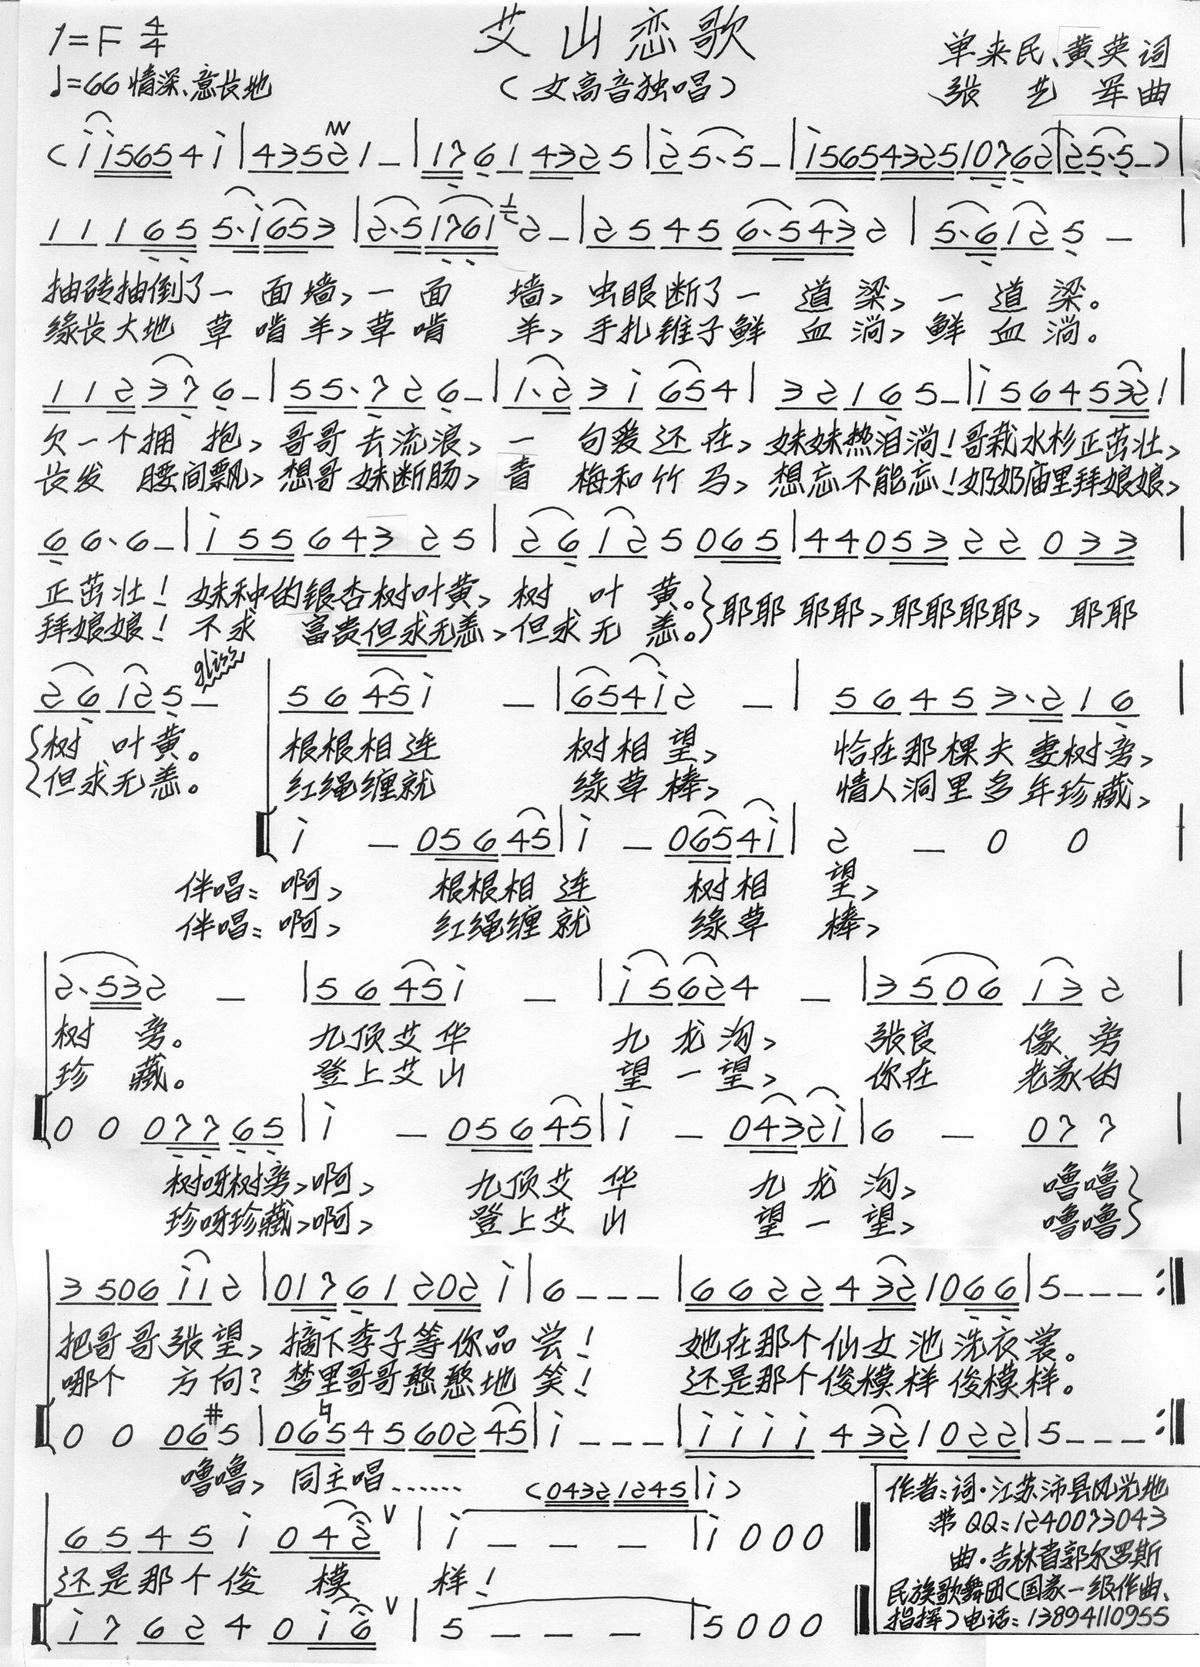 艾山恋歌
1=F 4/4
♩=66 情深、意长地
(女高音独唱)
单来民、黄英词
张艺军曲
(i i5654i|4352 1—|17614325|25·5—|i56543251076 2|25·5—)|
11165 5·i653|2·51761 2—|2545 6·5432|5·6125—|
抽砖抽倒了一面墙,一面墙,虫眼断了一道梁,一道梁。
缘长大地草啃羊,草啃羊,手扎锥子鲜血淌,鲜血淌。
112376—|55·726—|1·23i654|32165—|i5645321|
欠一个拥抱,哥哥去流浪,一句爱还在,妹妹热泪淌!哥栽水杉正茁壮,
长发腰间飘,想哥妹断肠,青梅和竹马,想忘不能忘!奶奶庙里拜娘娘,
66·6—|i5564325|26125065|4405322033|
正茁壮!妹种的银杏树叶黄,树叶黄。}耶耶耶耶,耶耶耶耶,耶耶
拜娘娘!不求富贵但求无恙,但求无恙。
26125— gliss|5645i—|654i2—|56453·216|
{树叶黄。根根相连树相望,恰在那棵夫妻树旁,
但求无恙。红绳缠就缘草棒,情人洞里多年珍藏,
i—05645|i—0654i|2—00|
伴唱:啊,根根相连树相望,
伴唱:啊,红绳缠就缘草棒,
2·532—|5645i—|i5624—|3506132|
树旁。九顶艾华九龙沟,张良像旁
珍藏。登上艾山望一望,你在老家的
0007765|i—05645|i—0432i|6—077|
树呀树旁,啊,九顶艾华九龙沟,噜噜}
珍呀珍藏,啊,登上艾山望一望,噜噜
3506ii2|01761202i|6———|66224321066|5———:|
把哥哥张望,摘下李子等你品尝!她在那个仙女池洗衣裳。
哪个方向?梦里哥哥憨憨地笑!还是那个俊模样俊模样。
0006#5|065♮4560245|i———|iiii4321022|5———:|
噜噜,同主唱……
(04321245|i)
6545i042∨|i———|i000‖
还是那个俊模样!
i76240i6∨|5———|5000‖
作者:词·江苏沛县风光地
带QQ:1240073043
曲·吉林省郭尔罗斯
民族歌舞团(国家一级作曲、
指挥)电话:13894110955